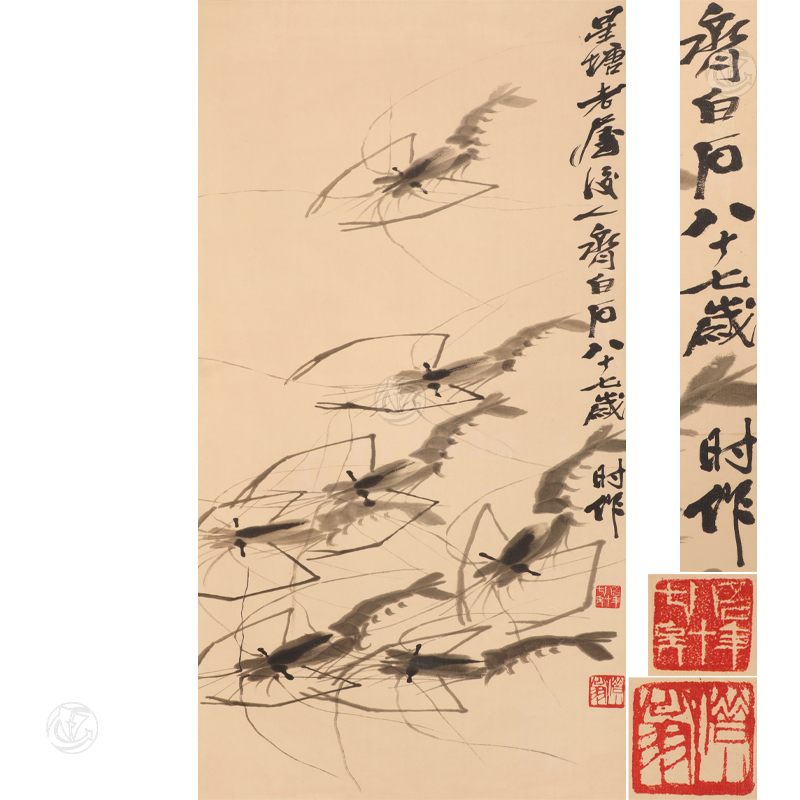 星塘老屋後人齊白石八十七歲时作
齊白石八十七歲时作